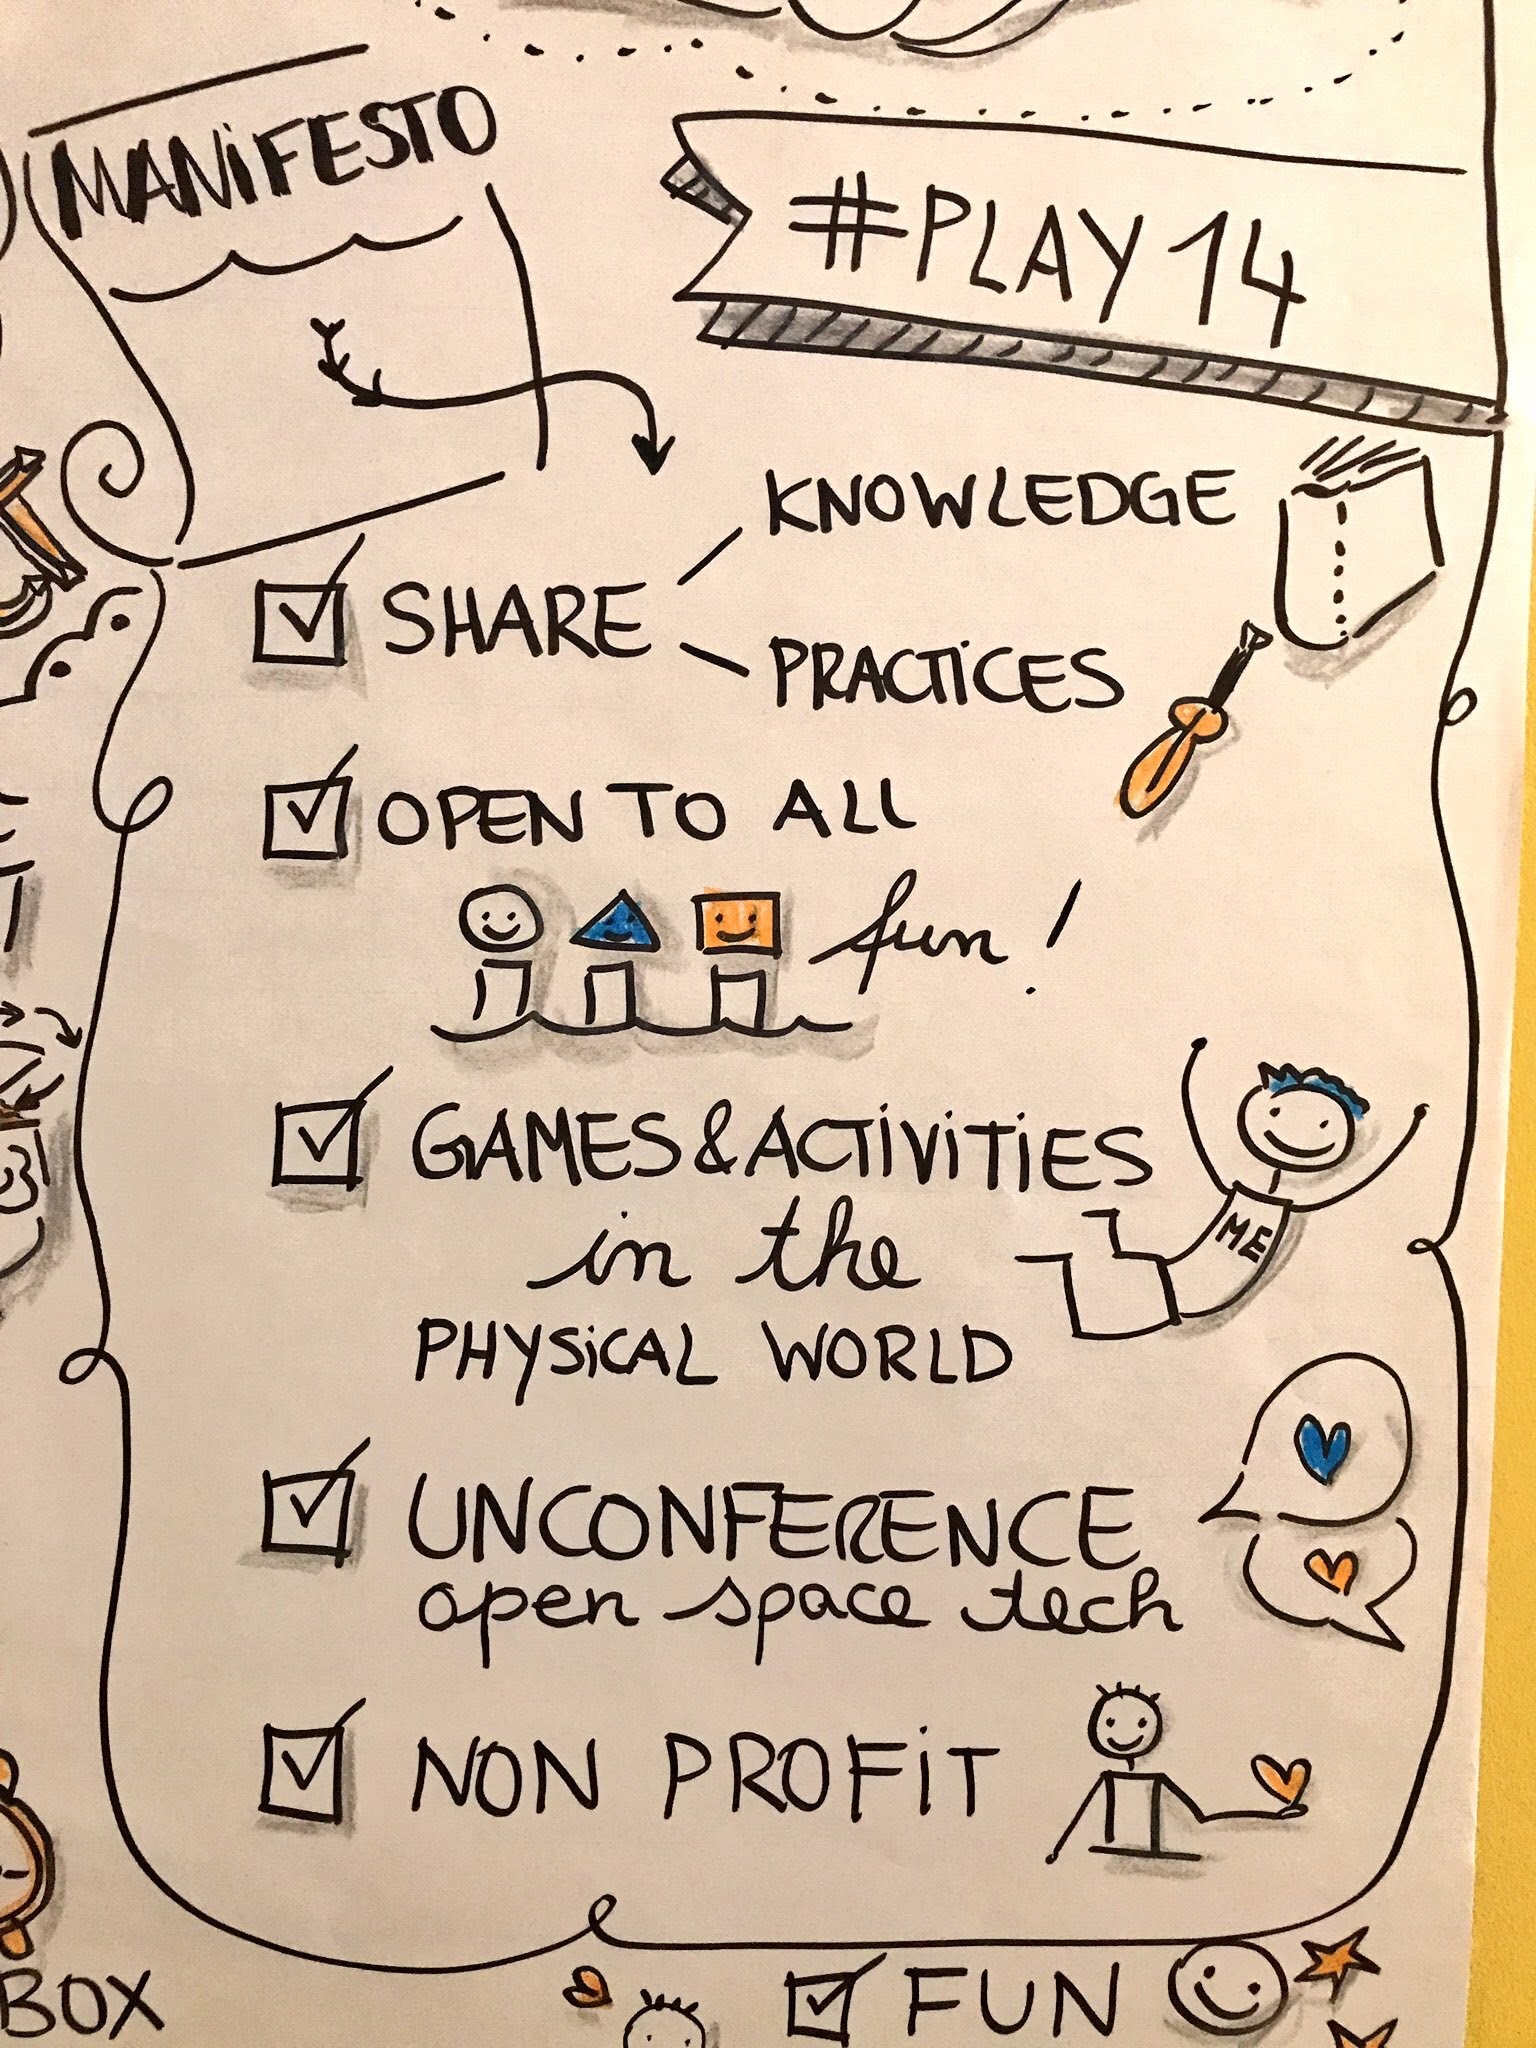 MANiFESTO
#PLAY14
KNOWLEDGE
SHARE
PRACTiCES
OPEN TO ALL
fun!
GAMES & ACTiViTiES
in the
PHYSiCAL WORLD
ME
UNCONFERENCE
open space tech
NON PROFiT
BOX
FUN